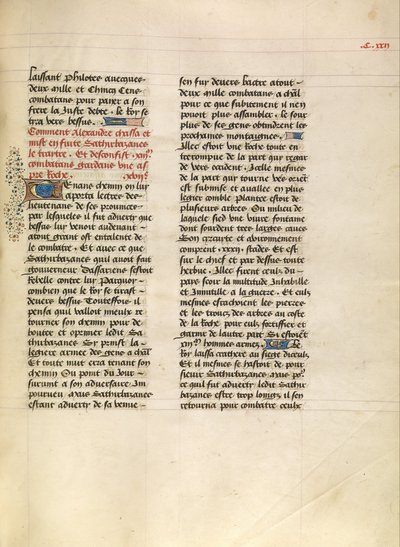 .C. xxii
laissant philotes avecques
deux mille et Chincq Cens
combatans pour paier a son
frere la Juste debte. le Roy se
tira vers bessus.
Comment Alexandre chassa et
mist en fuite Sathirbazanes
le tiartre. Et desconfist .xiii.
combatans gardans une as
pre Roche. .xviii.
Tenans chemin on luy
aporta lettres des
lieutenans de ses prouinces
par lesqueles il fut aduerty que
bessus luy venoit audeuant
atout grant et entalente de
le combatre. Et auec ce que
Sathirbazanes quil auoit fait
gouuerneur Dassariens sestoit
Rebelle contre luy Parquoy
combien que le Roy se tirast
deuers bessus Toutesfois il
pensa quil valloit mieulx re
tourner son chemin pour de
bouter et opprimer ledit Sa
thirbazanes Sy prinst la
legiere armee des gens a chlĩ
Et toute nuit erra tenant son
chemin Ou point du Jour
suruint a son aduersaire Im
pourueu Mais Sathirbazanes
estant aduerty de sa venue
sen fuy deuers bactre atout
deux mille combatans a chlĩ
pour ce que subitement il nen
pouoit plus assambler. le sour
plus de ses gens obtindrent les
prochaines montaignes.
Illec estoit vne Roche toute en
terrompue de la part qui regar
de vers occident. Icelle mesmes
de la part qui tourne vers orient
est submise et auallee en plus
legier comble plantee estoit de
plusieurs arbres Ou milieu de
laquele sied vne viue fontaine
dont sourdent tres larges eaues
Son circuite et auironnement
comprent .xxxii. stades Et est
sur le chief et par dessus toute
herbue. Illec firent ceulx du
pays seoir la multitude Inhabille
et Inmutille a la guerre. Et eulx
mesmes esrachoient les pierres
et les troncz des arbres au coste
de la Roche pour eulx fortifier et
garnir de lautre part Si estoiẽt
xiii hommes armez. Le
Roy laissa crathere au siege diceulx
Et il mesmes se hastoit de pour
sieuir Sathirbazanes Mais po
ce quil fut aduerty ledit Sathir
bazanes estre trop loingz, il sen
retourna pour combatre ceulx